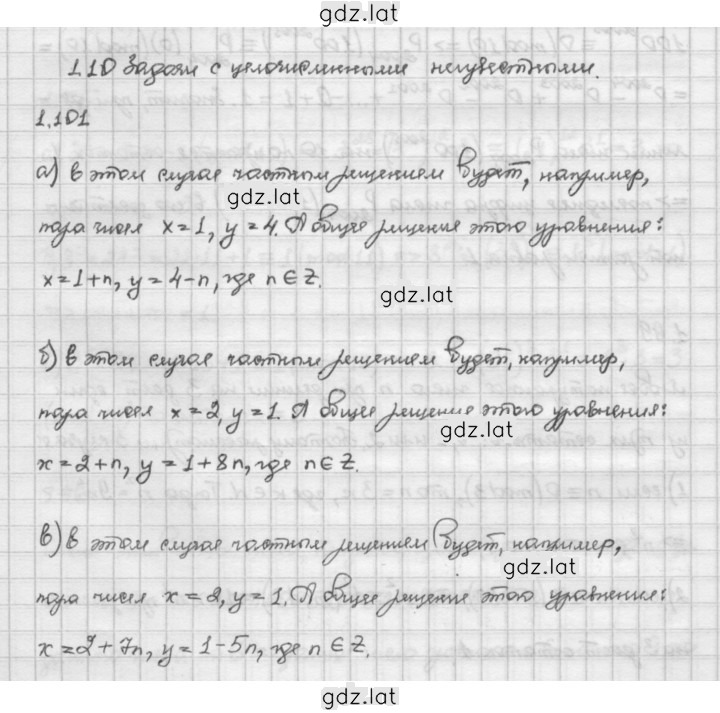 gdz.lat
1.10 Задачи с целочисленными неизвестными.
1.101
а) в этом случае частным решением будет, например,
gdz.lat
пара чисел x=1, y=4. А общее решение этого уравнения:
x=1+n, y=4-n, где n∈Z.
gdz.lat
б) в этом случае частным решением будет, например,
пара чисел x=2, y=1. А общее решение этого уравнения:
gdz.lat
x=2+n, y=1+8n, где n∈Z.
в) в этом случае частным решением будет, например,
gdz.lat
пара чисел x=2, y=1. А общее решение этого уравнения:
x=2+7n, y=1-5n, где n∈Z.
gdz.lat